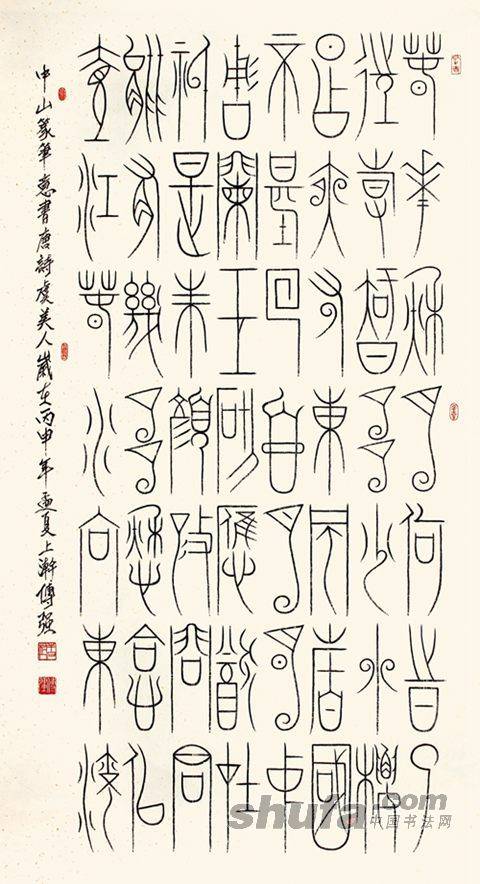 春花秋月何時了
往事知多少小樓
昨夜又東風故國
不堪回首月明中
雕闌玉砌應猶在
祇是朱顏改問君
能有幾多愁恰似
壹江春水向東流
中山篆筆意書唐詩虞美人歲在丙申年孟夏上澣傅强
shufa.com
中国书法网